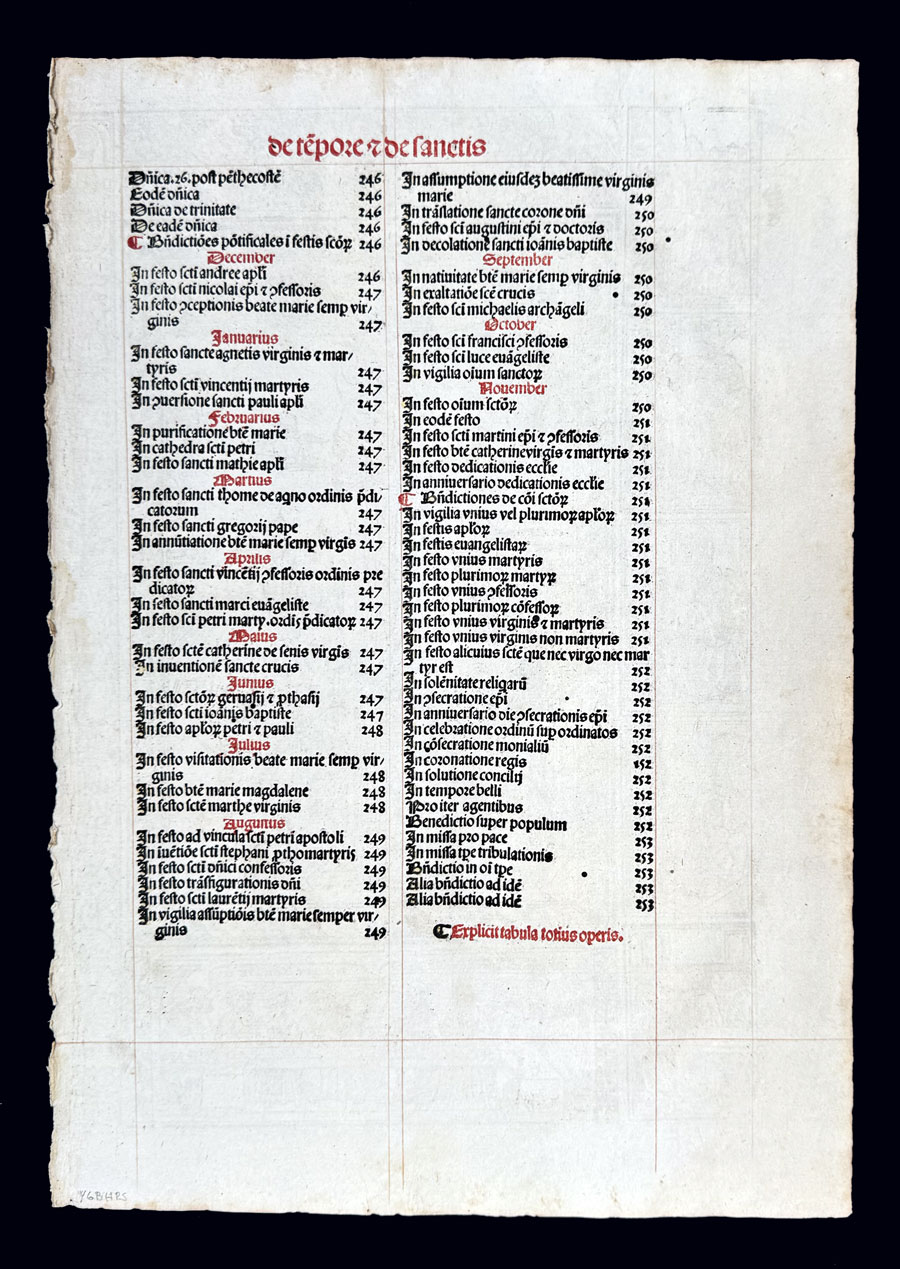 de tẽpore ⁊ de sanctis
Dñica .26. post pẽthecostẽ 246
Eodẽ dñica 246
Dñica de trinitate 246
De eadẽ dñica 246
¶ Bñdictiões põtificales ĩ festis scõꝝ 246
December
In festo scti andree apłi 246
In festo scti nicolai ep̃i ⁊ ꝯfessoris 247
In festo ꝯceptionis beate marie semꝑ vir⸗
ginis 247
Januarius
In festo sancte agnetis virginis ⁊ mar⸗
tyris 247
In festo scti vincentij martyris 247
In ꝯuersione sancti pauli apłi 247
Februarius
In purificatione btẽ marie 247
In cathedra scti petri 247
In festo sancti mathie apłi 247
Martius
In festo sancti thome de aqno ordinis p̃di⸗
catorum 247
In festo sancti gregorij pape 247
In annũtiatione btẽ marie semꝑ virgĩs 247
Aprilis
In festo sancti vincẽtij ꝯfessoris ordinis pre
dicatoꝝ 247
In festo sancti marci euãgeliste 247
In festo sci petri marty. ordis p̃dicatoꝝ 247
Maius
In festo sctẽ catherine de senis virgĩs 247
In inuentionẽ sancte crucis 247
Junius
In festo sctõꝝ geruasij ⁊ ꝓthasij 247
In festo scti ioãnis baptiste 247
In festo apłoꝝ petri ⁊ pauli 248
Julius
In festo visitationis beate marie semꝑ vir⸗
ginis 248
In festo btẽ marie magdalene 248
In festo sctẽ marthe virginis 248
Augustus
In festo ad vincula scti petri apostoli 249
In iuẽtiõe scti stephani ꝓthomartyris 249
In festo scti dñici confessoris 249
In festo trãsfigurationis dñi 249
In festo scti laurẽtij martyris 249
In vigilia assũptiõis btẽ marie semper vir⸗
ginis 249
In assumptione eiusdeʒ beatissime virginis
marie 249
In trãslatione sancte corone dñi 250
In festo sci augustini ep̃i ⁊ doctoris 250
In decolatione sancti ioãnis baptiste 250
September
In natiuitate btẽ marie semꝑ virginis 250
In exaltatiõe scẽ crucis 250
In festo sci michaelis archãgeli 250
October
In festo sci francisci ꝯfessoris 250
In festo sci luce euãgeliste 250
In vigilia oĩum sanctoꝝ 250
November
In festo oĩum sctõꝝ 250
In eodẽ festo 251
In festo scti martini ep̃i ⁊ ꝯfessoris 251
In festo btẽ catherine virgĩs ⁊ martyris 251
In festo dedicationis ecclĩe 251
In anniuersario dedicationis ecclĩe 251
¶ Bñdictiones de cõi sctõꝝ 251
In vigilia vnius vel plurimoꝝ apłoꝝ 251
In festis apłoꝝ 251
In festis euangelistaꝝ 251
In festo vnius martyris 251
In festo plurimoꝝ martyꝝ 251
In festo vnius ꝯfessoris 251
In festo plurimoꝝ cõfessoꝝ 251
In festo vnius virginis ⁊ martyris 251
In festo vnius virginis non martyris 251
In festo alicuius sctẽ que nec virgo nec mar
tyr est 252
In solẽnitate reliqarũ 252
In ꝯsecratione ep̃i 252
In anniuersario die ꝯsecrationis ep̃i 252
In celebratione ordinũ suꝑ ordinatos 252
In cõsecratione monialiũ 252
In coronatione regis 152
In solutione concilij 252
In tempore belli 252
Pro iter agentibus 252
Benedictio super populum 252
In missa pro pace 253
In missa tp̃e tribulationis 253
Bñdictio in oĩ tp̃e 253
Alia bñdictio ad idẽ 253
Alia bñdictio ad idẽ 253
¶ Explicit tabula totius operis.